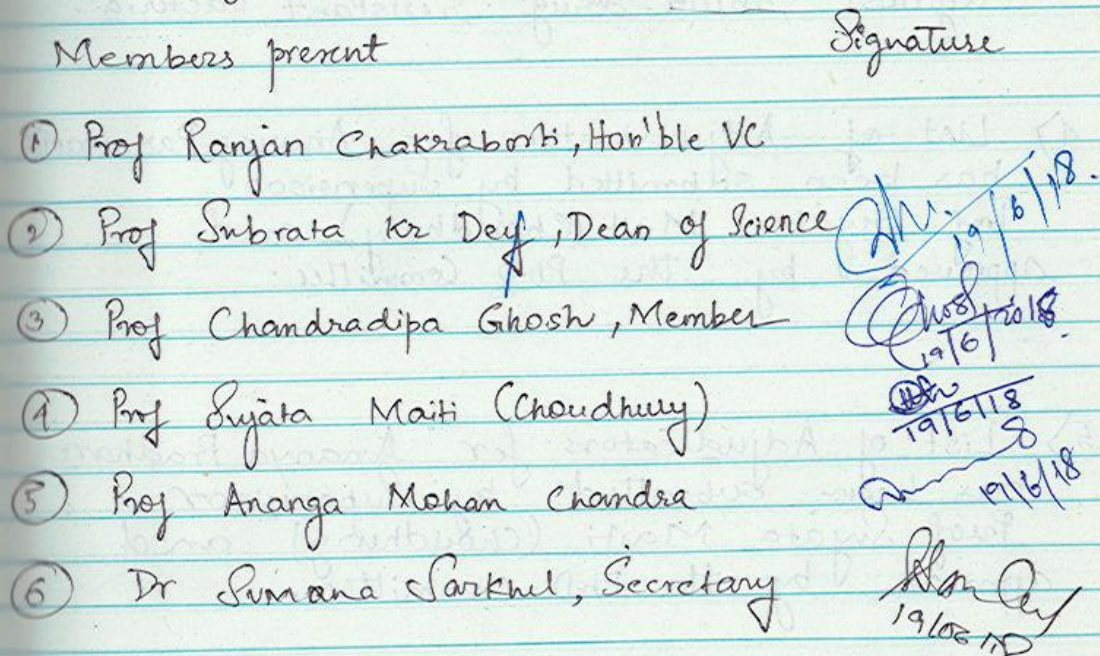 Members present Signature
① Prof Ranjan Chakraborti, Hon'ble VC
② Prof Subrata Kr Dey, Dean of Science 19/6/18.
③ Prof Chandradipa Ghosh, Member Ghosh 19/6/2018
④ Prof Sujata Maiti (Choudhury) 19/6/18
⑤ Prof Ananga Mohan Chandra 19/6/18
⑥ Dr Sumana Sarkhel, Secretary